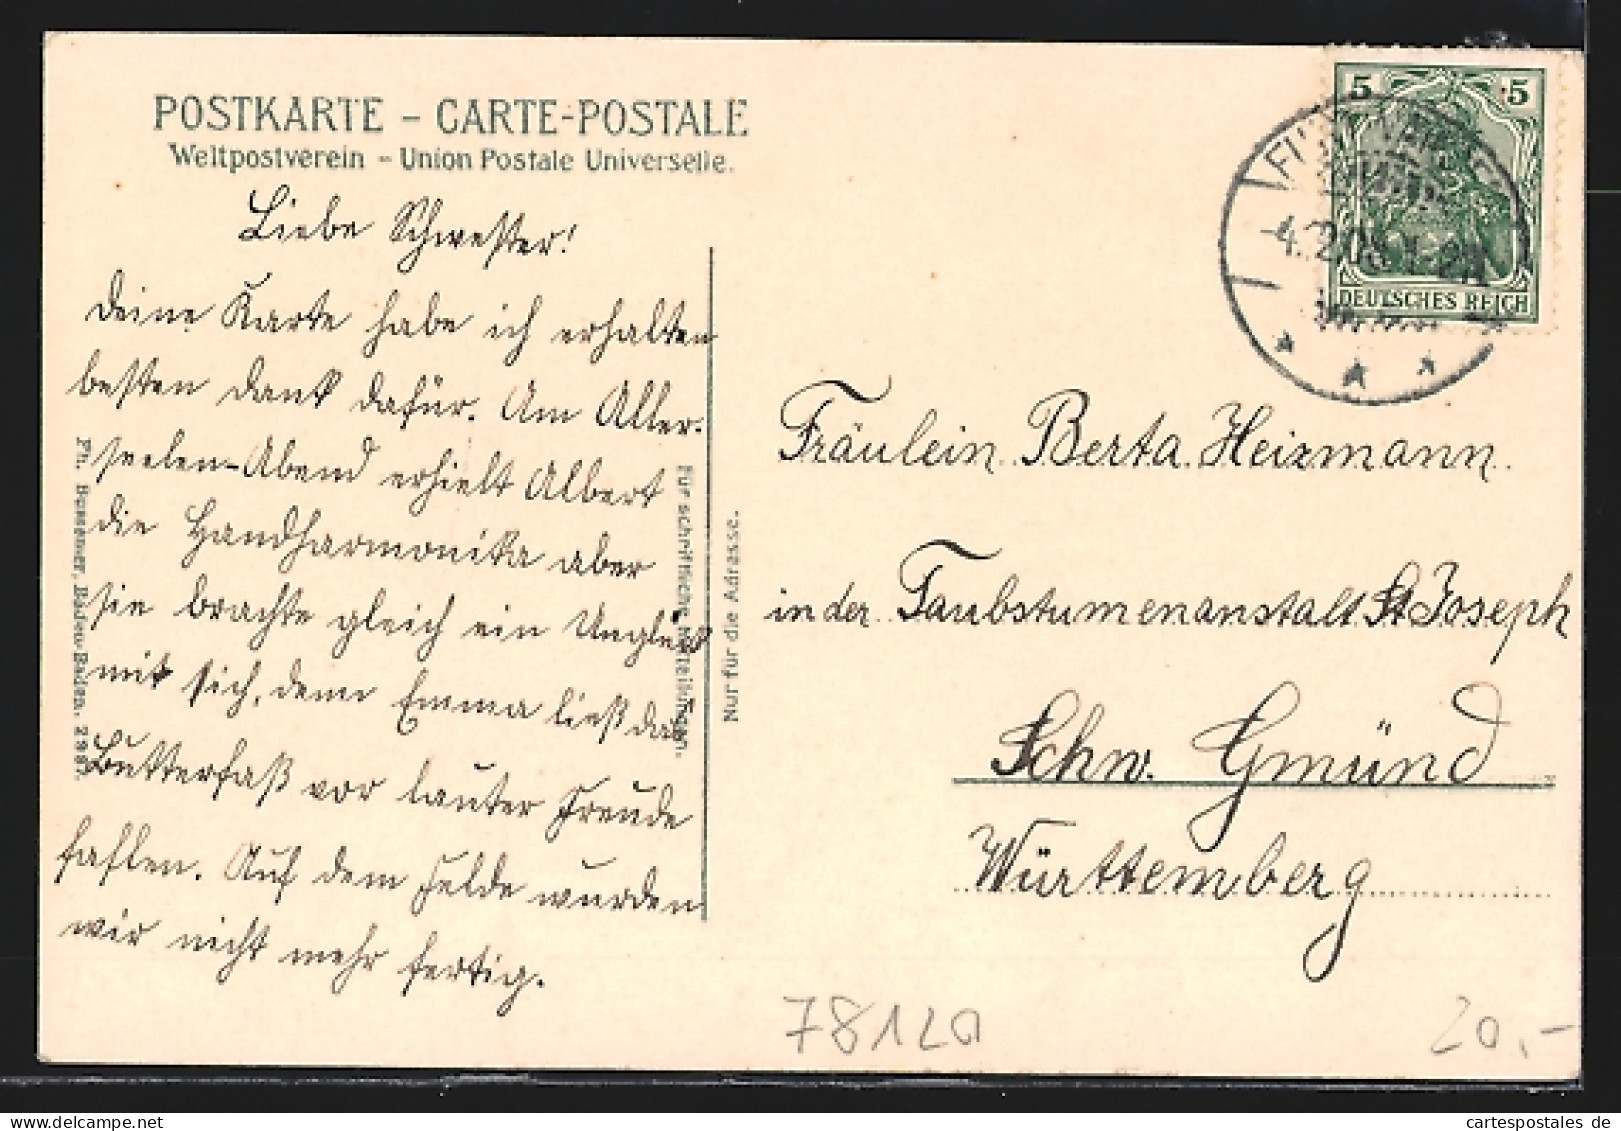 POSTKARTE – CARTE-POSTALE
Weltpostverein – Union Postale Universelle.
Liebe Schwester!
deine Karte habe ich erhalten
besten dank dafür. Am Aller-
seelen-Abend erhielt Albert
die Handharmonika aber
sie brachte gleich ein Unglück
mit sich, denn Emma ließ das
Butterfaß vor lauter Freude
fallen. Auf dem Felde wurden
wir nicht mehr fertig.
Ph. Bussemer, Baden-Baden. 2987.
Für schriftliche Mitteilungen.
Nur für die Adresse.
5 5
DEUTSCHES REICH
Fräulein Berta Heizmann
in der Taubstumenanstalt St Joseph
Schw. Gmünd
Württemberg
78120
20,-
cartespostales de